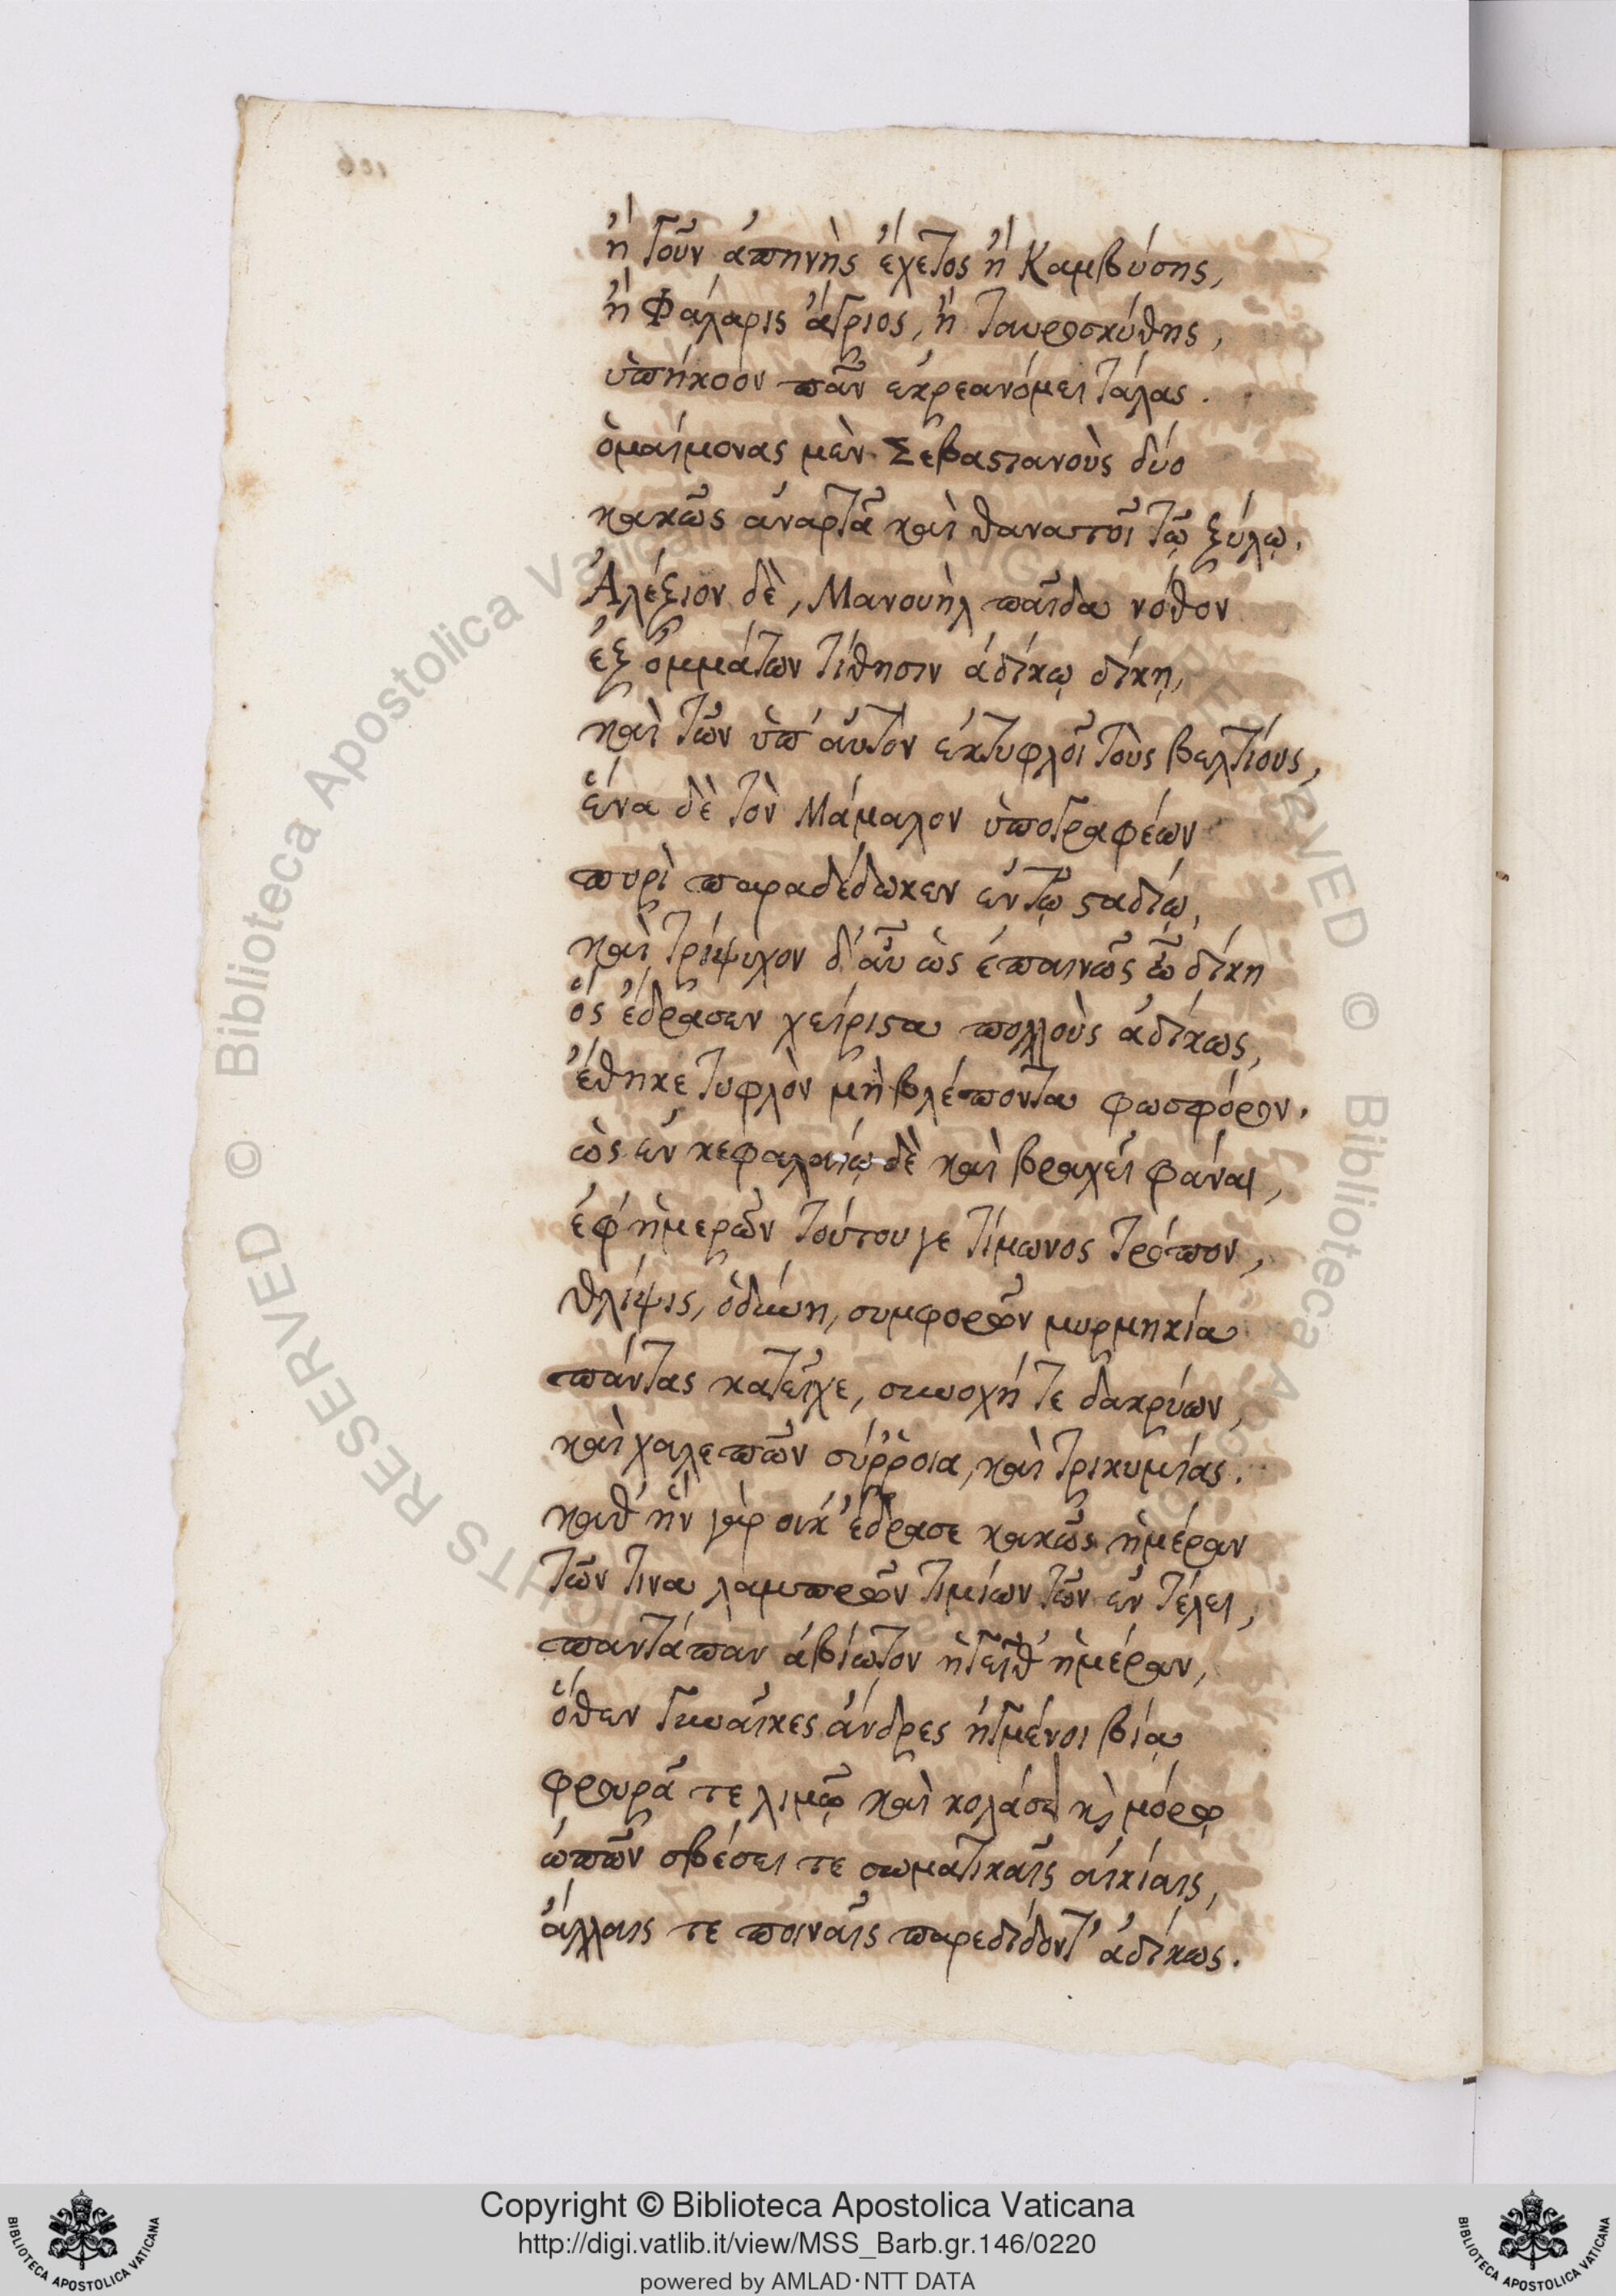 ἢ γοῦν ἀπηνὴς ἔχετος ἢ Καμβύσης,
ἢ Φάλαρις ἄγριος, ἢ Ταυροσκύθης,
ὑπήκοον πᾶν ἐκρεανόμει τάλας.
ὁμαίμονας μὲν Σεβαστιανοὺς δύο
κακῶς ἀναρτᾶ καὶ θανατοῖ τῷ ξύλῳ.
Ἀλέξιον δὲ, Μανουὴλ παῖδα νόθον
ἐξ ὀμμάτων τίθησιν ἀδίκῳ δίκῃ,
καὶ τῶν ὑπ' αὐτὸν ἐκτυφλοῖ τοὺς βελτίους,
ἕνα δὲ τὸν Μάμαλον ὑπογραφέων
πυρὶ παραδέδωκεν ἐν τῷ σταδίῳ,
καὶ Τρίψυχον δ' αὖ ὡς ἐπαινῶ σῶ δίκη
ὃς ἔδρασεν χείριστα πολλοὺς ἀδίκως,
ἔθηκε τυφλὸν μὴ βλέποντα φωσφόρον.
ὡς ἐν κεφαλαίῳ δὲ καὶ βραχεῖ φάναι,
ἐφ' ἡμερῶν τούτου γε Τίμωνος τρόπον,
θλίψις, ὀδύνη, συμφορῶν μυρμηκία
πάντας κατεῖχε, συνοχή τε δακρύων,
καὶ χαλεπῶν σύῤῥοια, καὶ τρικυμίας.
καθ' ἣν γὰρ οὐκ ἔδρασε κακῶς ἡμέραν
τῶν τινα λαμπρῶν τιμίων τῶν ἐν τέλει,
παντάπαν ἀβίωτον ἡγεῖθ' ἡμέραν,
ὅθεν γυναῖκες ἄνδρες ἠγμένοι βίᾳ
φρουρᾷ τε λιμῷ καὶ κολάσει κὶ μόρῳ
ὠπῶν σβέσει τε σωματικαῖς αἰκίαις,
ἄλλαις τε ποιναῖς παρεδίδοντ' ἀδίκως.
Copyright © Biblioteca Apostolica Vaticana
http://digi.vatlib.it/view/MSS_Barb.gr.146/0220
powered by AMLAD·NTT DATA